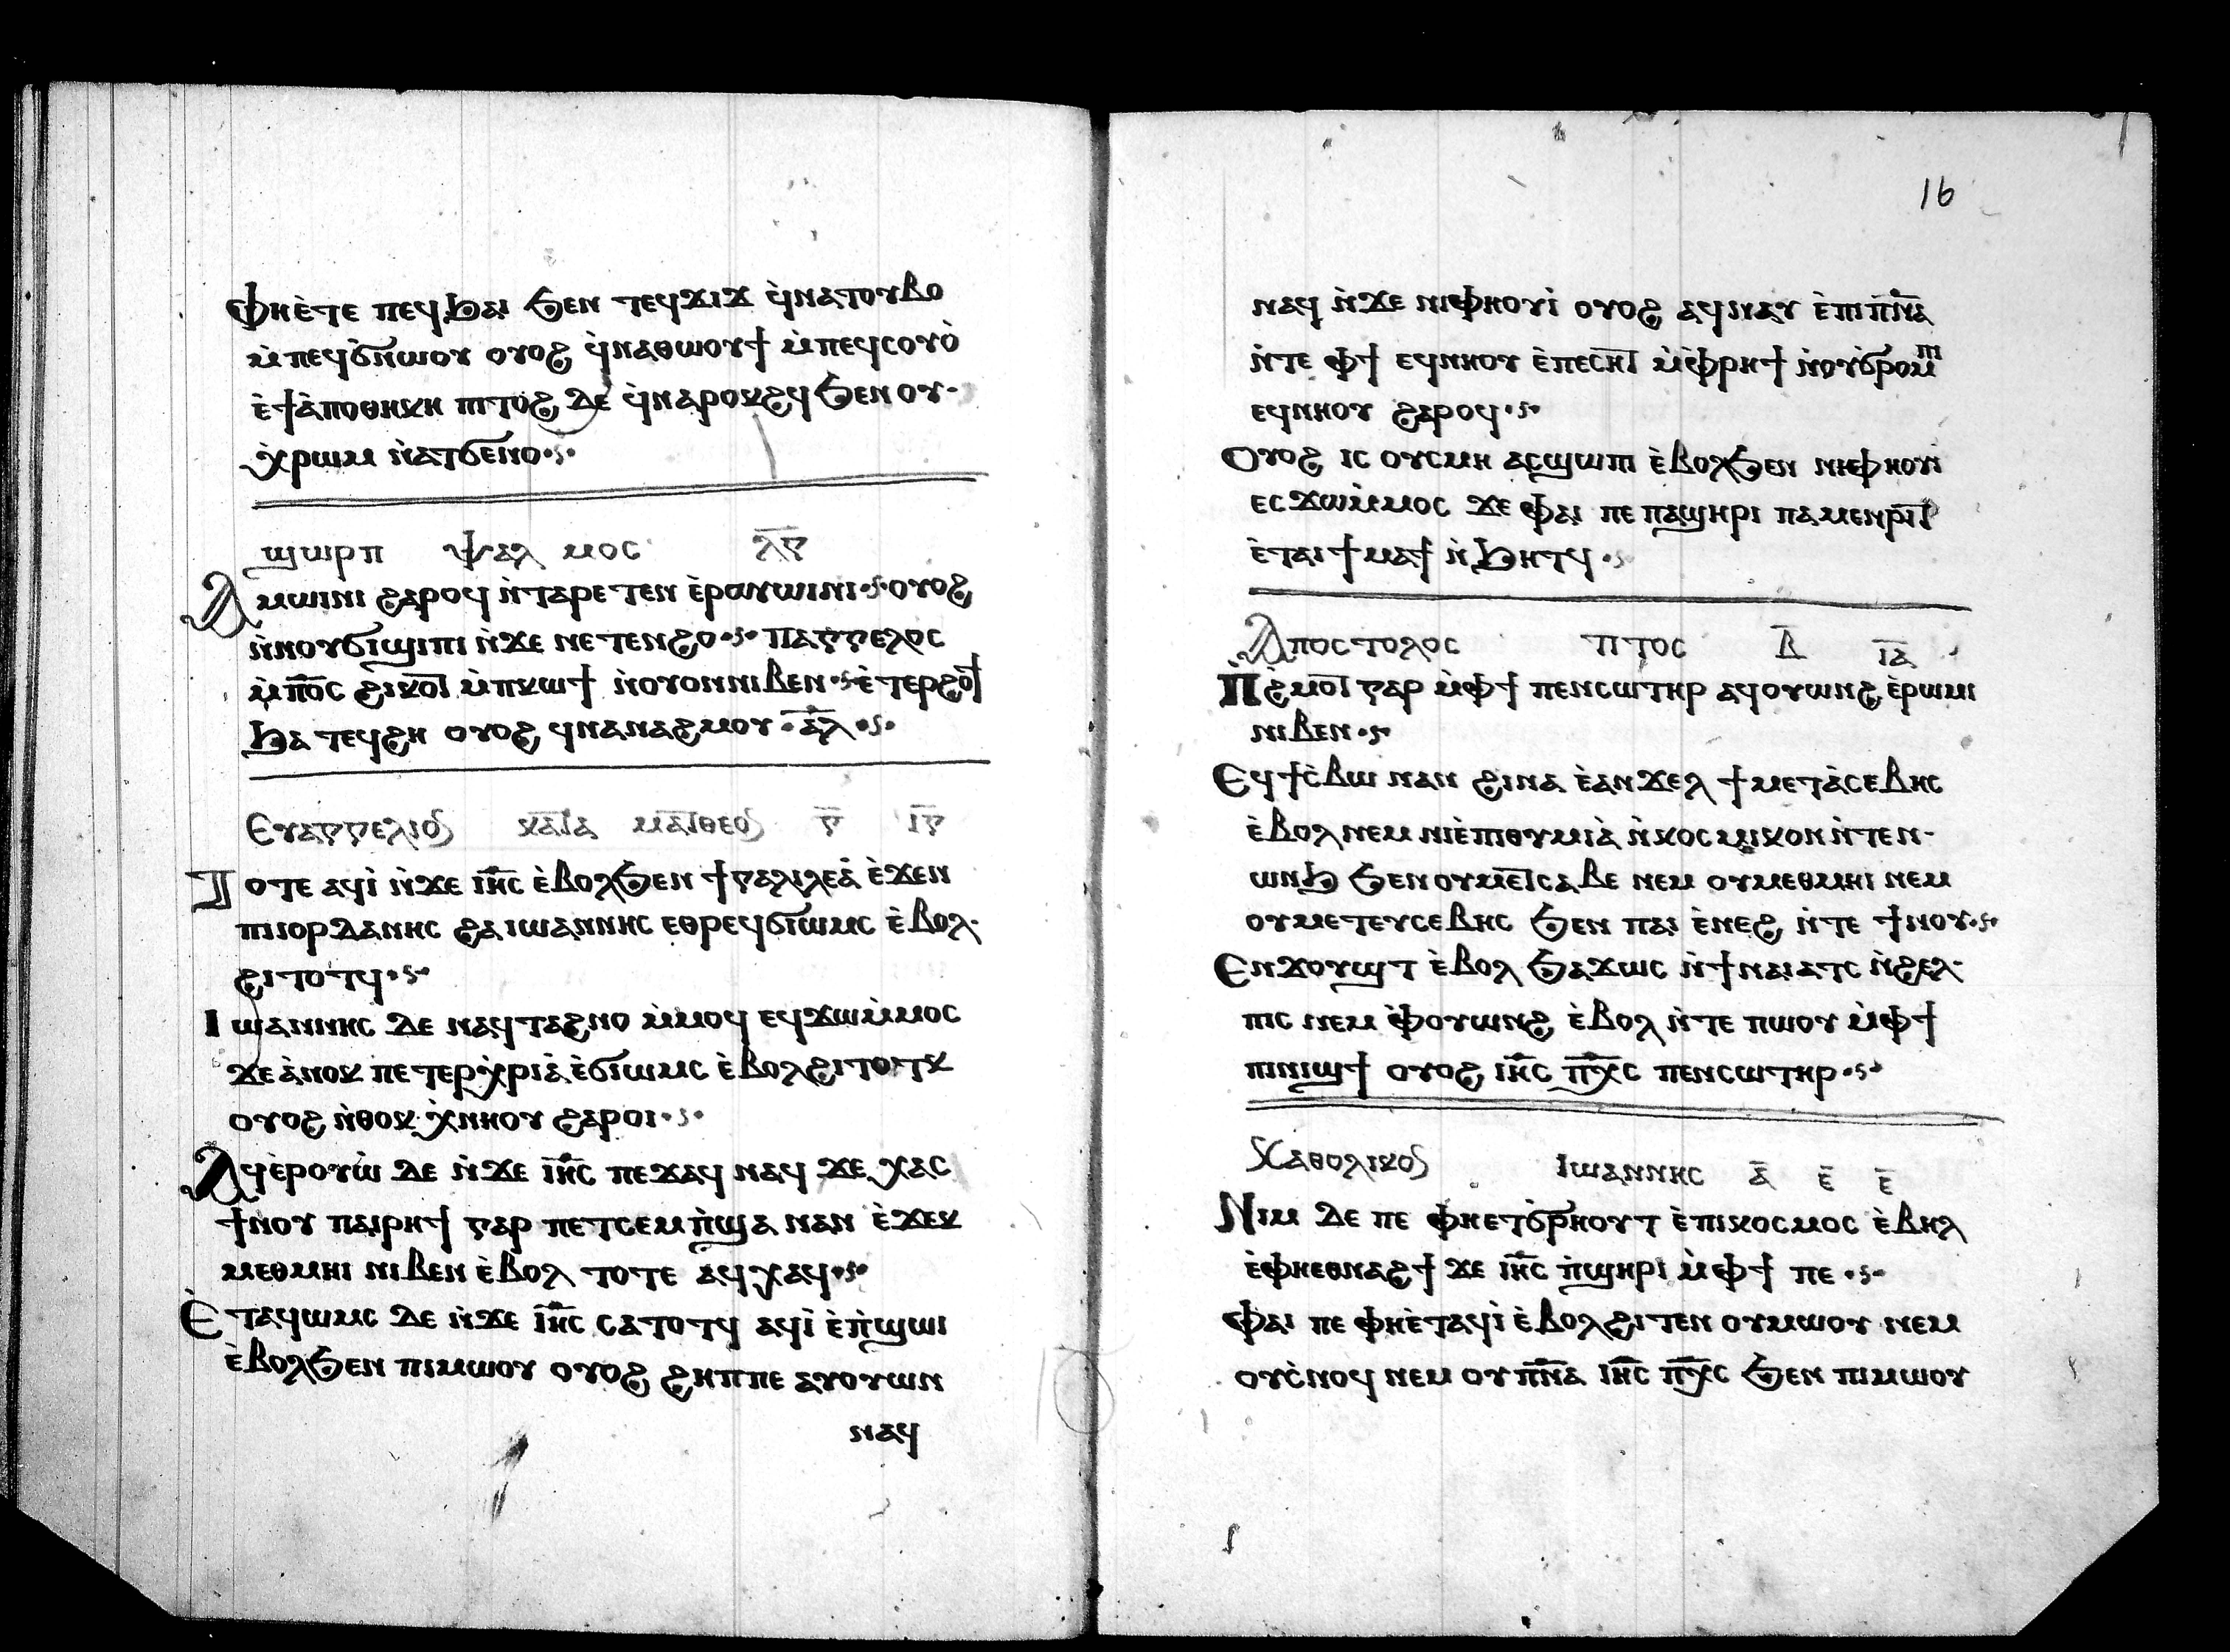 ⲫⲏⲉ̀ⲧⲉ ⲡⲉϥϧⲁⲓ ϧⲉⲛ ⲧⲉϥϫⲓϫ ϥ̀ⲛⲁⲧⲟⲩⲃⲟ
ⲙ̀ⲡⲉϥϭⲛⲱⲟⲩ ⲟⲩⲟϩ ϥ̀ⲛⲁⲑⲱⲟⲩϯ ⲙ̀ⲡⲉϥⲥⲟⲩⲟ̀
ⲉ̀ϯⲁ̀ⲡⲟⲑⲏⲕⲏ ⲡⲓⲧⲟϩ ⲇⲉ ϥ̀ⲛⲁⲣⲟⲕϩϥ ϧⲉⲛ ⲟⲩ-
ⲭ̀ⲣⲱⲙ ⲛ̀ⲁⲧϭⲉⲛⲟ
ϣⲱⲣⲡ ⲯⲁⲗ ⲙⲟⲥ ⲗ̅ⲅ̅
Ⲁⲙⲱⲓⲛⲓ ϩⲁⲣⲟϥ ⲛ̀ⲧⲁⲣⲉⲧⲉⲛ ⲉ̀ⲣⲟⲩⲱⲓⲛⲓ ⲟⲩⲟϩ
ⲛ̀ⲛⲟⲩϭⲓϣⲓⲡⲓ ⲛ̀ϫⲉ ⲛⲉⲧⲉⲛϩⲟ ⲡⲁⲅⲅⲉⲗⲟⲥ
ⲙ̀ⲡ̅ⲟ̅ⲥ̅ ϩⲓⲕⲟϯ ⲙ̀ⲡⲕⲱϯ ⲛ̀ⲟⲩⲟⲛⲛⲓⲃⲉⲛ ⲉ̀ⲧⲉⲣϩⲟϯ
ϧⲁ ⲧⲉϥϩⲏ ⲟⲩⲟϩ ϥⲛⲁⲛⲁϩⲙⲟⲩ ⲁ̅ⲗ̅
Ⲉⲩⲁⲅⲅⲉⲗⲓⲟⲥ ⲕⲁⲧⲁ ⲙⲁⲧⲑⲉⲟⲥ ⲅ̅ ⲓ̅ⲅ̅
Ⲧⲟⲧⲉ ⲁϥⲓ̀ ⲛ̀ϫⲉ ⲓ̅ⲏ̅ⲥ̅ ⲉ̀ⲃⲟⲗϧⲉⲛ ϯⲅⲁⲗⲓⲗⲉⲁ̀ ⲉ̀ϫⲉⲛ
ⲡⲓⲓⲟⲣⲇⲁⲛⲏⲥ ϩⲁ ⲓⲱⲁⲛⲛⲏⲥ ⲉⲑⲣⲉϥϭⲓⲱⲙⲥ ⲉ̀ⲃⲟⲗ-
ϩⲓⲧⲟⲧϥ
Ⲓⲱⲁⲛⲛⲏⲥ ⲇⲉ ⲛⲁϥⲧⲁϩⲛⲟ ⲙ̀ⲙⲟϥ ⲉϥϫⲱⲙ̀ⲙⲟⲥ
ϫⲉ ⲁ̀ⲛⲟⲕ ⲡⲉⲧⲉⲣⲭ̀ⲣⲓⲁ̀ ⲉ̀ϭⲓⲱⲙⲥ ⲉ̀ⲃⲟⲗϩⲓⲧⲟⲧⲕ
ⲟⲩⲟϩ ⲛ̀ⲑⲟⲕ ⲭ̀ⲛⲏⲟⲩ ϩⲁⲣⲟⲓ
Ⲁϥⲉ̀ⲣⲟⲩⲱ̀ ⲇⲉ ⲛ̀ϫⲉ ⲓ̅ⲏ̅ⲥ̅ ⲡⲉϫⲁϥ ⲛⲁϥ ϫⲉ ⲭⲁⲥ
ϯⲛⲟⲩ ⲡⲁⲓⲣⲏϯ ⲅⲁⲣ ⲡⲉⲧⲥⲉⲙⲡ̀ϣⲁ ⲛⲁⲛ ⲉ̀ϫⲉⲕ
ⲙⲉⲑⲙⲏⲓ ⲛⲓⲃⲉⲛ ⲉ̀ⲃⲟⲗ ⲧⲟⲧⲉ ⲁϥⲭⲁϥ
Ⲉ̀ⲧⲁϥⲱⲙⲥ ⲇⲉ ⲛ̀ϫⲉ ⲓ̅ⲏ̅ⲥ̅ ⲥⲁⲧⲟⲧϥ ⲁϥⲓ̀ ⲉ̀ⲡ̀ϣⲱⲓ
ⲉ̀ⲃⲟⲗϧⲉⲛ ⲡⲓⲙⲱⲟⲩ ⲟⲩⲟϩ ϩⲏⲡⲡⲉ ⲁⲩⲟⲩⲱⲛ
ⲛⲁϥ
16
ⲛⲁϥ ⲛ̀ϫⲉ ⲛⲓⲫⲏⲟⲩⲓ̀ ⲟⲩⲟϩ ⲁϥⲛⲁⲩ ⲉ̀ⲡⲓⲡ̅ⲛ̅ⲁ̅
ⲛ̀ⲧⲉ ⲫϯ ⲉϥⲛⲏⲟⲩ ⲉ̀ⲡⲉⲥⲏⲧ ⲙ̀ⲫ̀ⲣⲏϯ ⲛ̀ⲟⲩϭ̀ⲣⲟⲙⲡⲓ
ⲉϥⲛⲏⲟⲩ ϩⲁⲣⲟϥ
Ⲟⲩⲟϩ ⲓⲥ ⲟⲩⲥⲙⲏ ⲁⲥϣⲱⲡⲓ ⲉ̀ⲃⲟⲗϧⲉⲛ ⲛⲓⲫⲏⲟⲩⲓ̀
ⲉⲥϫⲱⲙ̀ⲙⲟⲥ ϫⲉ ⲫⲁⲓ ⲡⲉ ⲡⲁϣⲏⲣⲓ ⲡⲁⲙⲉⲛⲣⲓⲧ
ⲉ̀ⲧⲁⲓϯⲙⲁϯ ⲛ̀ϧⲏⲧϥ
Ⲁⲡⲟⲥⲧⲟⲗⲟⲥ ⲧⲓⲧⲟⲥ ⲃ̅ ⲓ̅ⲁ̅
Ⲡϩ̀ⲙⲟⲧ ⲅⲁⲣ ⲙ̀ⲫϯ ⲡⲉⲛⲥⲱⲧⲏⲣ ⲁϥⲟⲩⲱⲛϩ ⲉ̀ⲣⲱⲙⲓ
ⲛⲓⲃⲉⲛ
Ⲉϥϯⲥ̀ⲃⲱ ⲛⲁⲛ ϩⲓⲛⲁ ⲉ̀ⲁⲛϫⲉⲗ ϯⲙⲉⲧⲁ̀ⲥⲉⲃⲏⲥ
ⲉ̀ⲃⲟⲗ ⲛⲉⲙ ⲛⲓⲉ̀ⲡⲓⲑⲩⲙⲓⲁ̀ ⲛ̀ⲕⲟⲥⲙⲓⲕⲟⲛ ⲛ̀ⲧⲉⲛ-
ⲱⲛϧ ϧⲉⲛ ⲟⲩⲙⲉⲧⲥⲁⲃⲉ ⲛⲉⲙ ⲟⲩⲙⲉⲑⲙⲏⲓ ⲛⲉⲙ
ⲟⲩⲙⲉⲧⲉⲩⲥⲉⲃⲏⲥ ϧⲉⲛ ⲡⲁⲓ ⲉ̀ⲛⲉϩ ⲛ̀ⲧⲉ ϯⲛⲟⲩ
Ⲉⲛϫⲟⲩϣⲧ ⲉ̀ⲃⲟⲗ ϧⲁϫⲱⲥ ⲛ̀ϯⲛⲁⲓⲁⲧⲥ ⲛ̀ϩⲉⲗ-
ⲡⲓⲥ ⲛⲉⲙ ⲫ̀ⲟⲩⲱⲛϩ ⲉ̀ⲃⲟⲗ ⲛ̀ⲧⲉ ⲡⲱⲟⲩ ⲙ̀ⲫϯ
ⲡⲓⲛⲓϣϯ ⲟⲩⲟϩ ⲓ̅ⲏ̅ⲥ̅ ⲡ̅ⲭ̅ⲥ̅ ⲡⲉⲛⲥⲱⲧⲏⲣ
Ⲕⲁⲑⲟⲗⲓⲕⲟⲥ ⲓⲱⲁⲛⲛⲏⲥ ⲁ̅ ⲉ̅ ⲉ̅
Ⲛⲓⲙ ⲇⲉ ⲡⲉ ⲫⲏⲉⲧϭⲣⲏⲟⲩⲧ ⲉ̀ⲡⲓⲕⲟⲥⲙⲟⲥ ⲉ̀ⲃⲏⲗ
ⲉ̀ⲫⲏⲉⲑⲛⲁϩϯ ϫⲉ ⲓ̅ⲏ̅ⲥ̅ ⲡ̀ϣⲏⲣⲓ ⲙ̀ⲫϯ ⲡⲉ
Ⲫⲁⲓ ⲡⲉ ⲫⲏⲉ̀ⲧⲁϥⲓ̀ ⲉ̀ⲃⲟⲗϩⲓⲧⲉⲛ ⲟⲩⲙⲱⲟⲩ ⲛⲉⲙ
ⲟⲩⲥ̀ⲛⲟϥ ⲛⲉⲙ ⲟⲩⲡ̅ⲛ̅ⲁ̅ ⲓ̅ⲏ̅ⲥ̅ ⲡ̅ⲭ̅ⲥ̅ ϧⲉⲛ ⲡⲓⲙⲱⲟⲩ